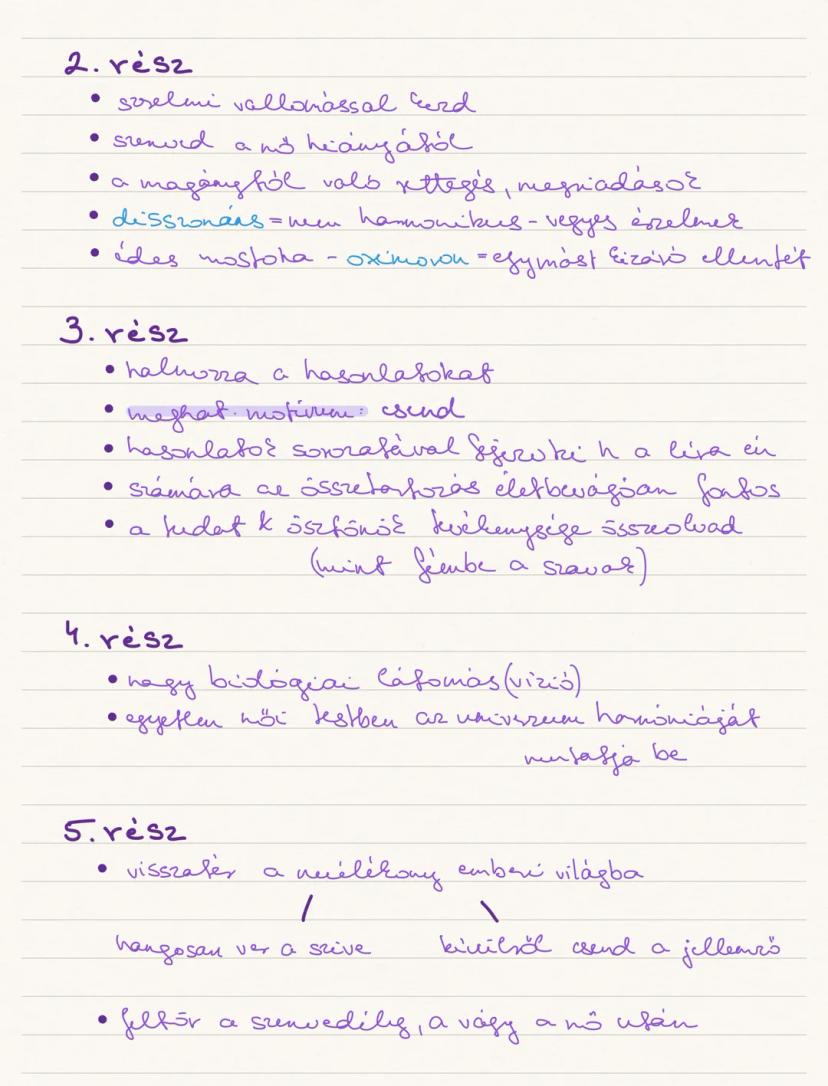 2. rész
• szerelmi vallomással kezd
• szenved a nő hiányától
• a magánytól való rettegés, megriadások
• disszonáns = nem harmonikus - vegyes érzelmek
• édes mostoha - oximoron = egymást kizáró ellentét
3. rész
• halmozza a hasonlatokat
• meghat. motívum: csend
• hasonlatok sorozatával fejezi ki h a lírai én
• számára az összetartozás életbevágóan fontos
• a tudat k ösztönök tevékenysége összeolvad
(mint fémbe a szavak)
4. rész
• nagy biológiai látomás (vízió)
• egyetlen női testben az univerzum harmóniáját
mutatja be
5. rész
• visszatér a múlékony emberi világba
hangosan ver a szíve kívülről csend a jellemző
• feltör a szenvedély, a vágy a nő után